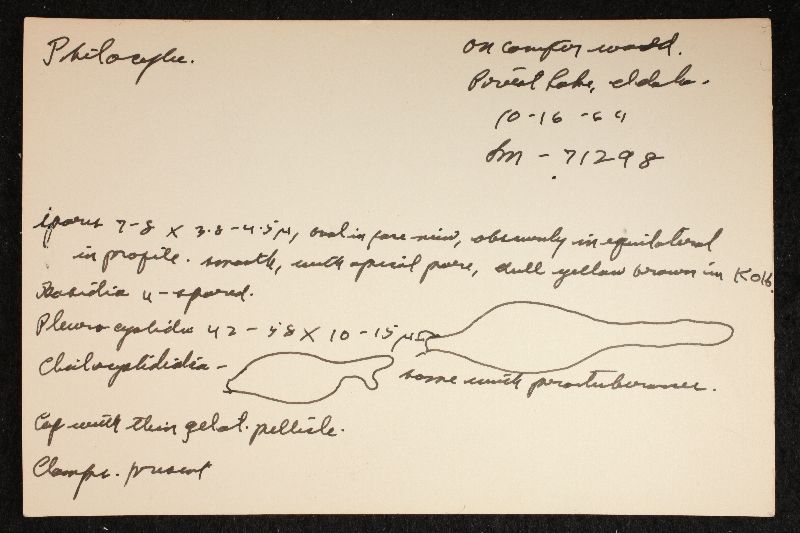 Philocybe.
on conifer wood.
Priest Lake, Idaho.
10-16-64
Sm - 71298
spores 7-8 x 3.8-4.5 µ, oval in face view, obscurely inequilateral
in profile. smooth, with apical pore, dull yellow brown in KOH.
Basidia 4-spored.
Pleurocystidia 42-58 x 10-15 µ
Cheilocystididia -
some with protuberances.
Cap with thin gelat. pellicle.
Clamps. present